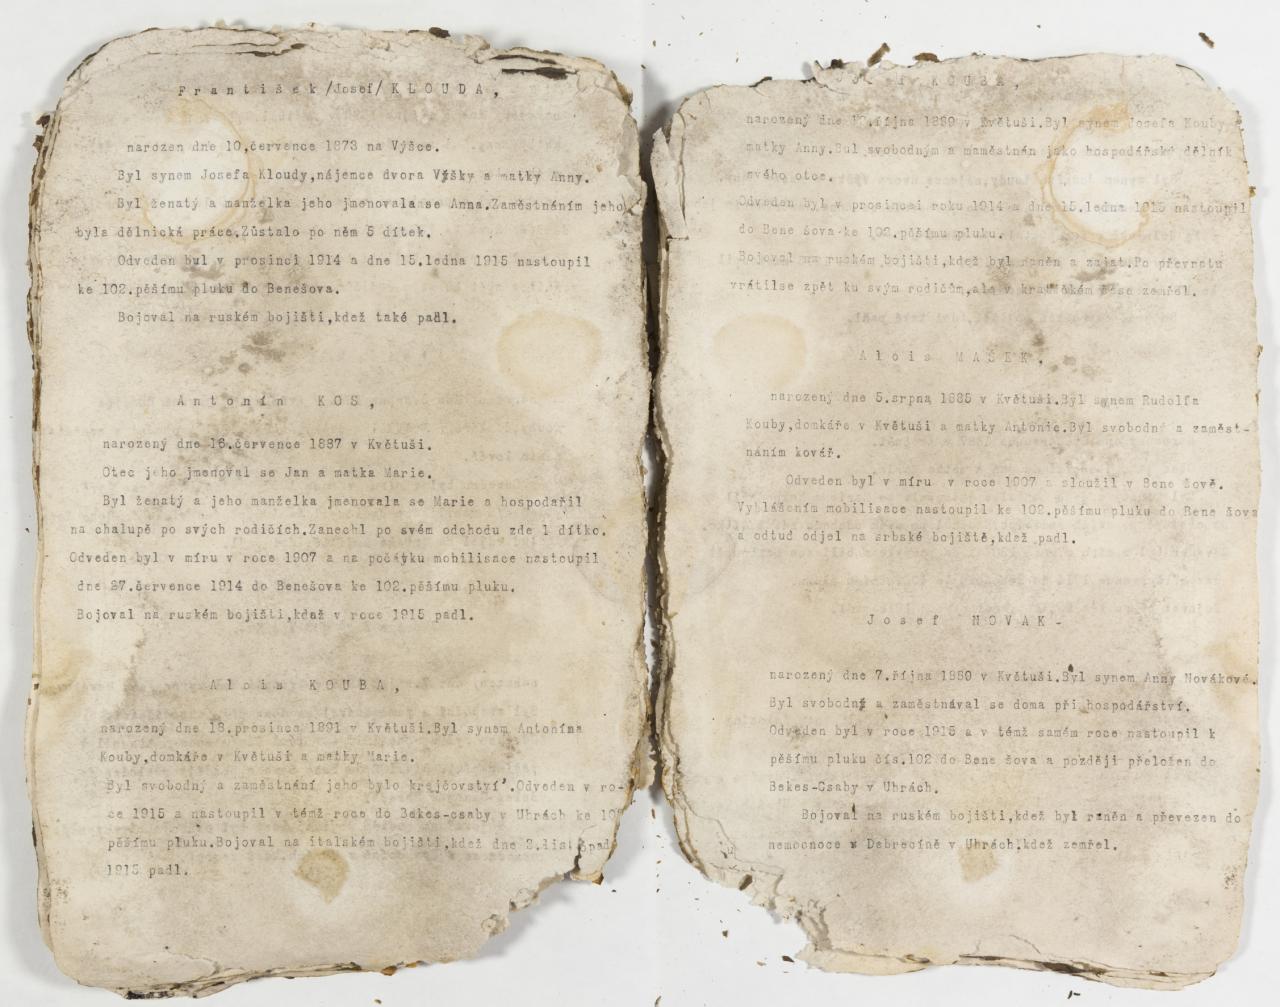 František/Josef/KLOUDA,
narozen dne 10.července 1873 na Výšce.
Byl synem Josefa Kloudy,nájemce dvora Výšky a matky Anny.
Byl ženatý a manželka jeho jmenovala se Anna.Zaměstnáním jeho
byla dělnická práce.Zůstalo po něm 5 dítek.
Odveden byl v prosinci 1914 a dne 15.ledna 1915 nastoupil
ke 102.pěšímu pluku do Benešova.
Bojoval na ruském bojišti,kdež také padl.
Antonín KOS,
narozený dne 16.července 1887 v Květuši.
Otec jeho jmenoval se Jan a matka Marie.
Byl ženatý a jeho manželka jmenovala se Marie a hospodařil
na chalupě po svých rodičích.Zanechl po svém odchodu zde 1 dítko.
Odveden byl v míru v roce 1907 a na počátku mobilisace nastoupil
dne 27.července 1914 do Benešova ke 102.pěšímu pluku.
Bojoval na ruském bojišti,kdaž v roce 1915 padl.
Alois KOUBA,
narozený dne 18.prosince 1891 v Květuši.Byl synem Antonína
Kouby,domkáře v Květuši a matky Marie.
Byl svobodný a zaměstnání jeho bylo krejčovství.Odveden v ro-
ce 1915 a nastoupil v témž roce do Bekes-csaby v Uhrách ke 102
pěšímu pluku.Bojoval na italském bojišti,kdež dne 2.listopad
1915 padl.
KOUBA,
narozený dne října 1889 v Květuši.Byl synem Josefa Kouby
matky Anny.Bul svobodným a maměstnán jako hospodářský dělník
svého otce.
Odveden byl v prosinci roku 1914 a dne 15.ledna 1915 nastoupil
do Bene šova ke 102.pěšímu pluku.
Bojoval na ruském bojišti,kdež byl raněn a zajat.Po převratu
vrátilse zpět ku svým rodičům,ale v kratičkém čase zemřel.
Alois MAŠEK,
narozený dne 5.srpna 1885 v Květuši.Byl synem Rudolfa
Kouby,domkáře v Květuši a matky Antonie.Byl svobodný a zaměst-
náním kovář.
Odveden byl v míru v roce 1907 a sloužil v Bene šově.
Vyhlášením mobilisace nastoupil ke 102.pěšímu pluku do Bene šova
a odtud odjel na srbské bojiště,kdež padl.
Josef NOVAK.
narozený dne 7.října 1880 v Květuši.Byl synem Anny Novákové.
Byl svobodný a zaměstnával se doma při hospodářství.
Odveden byl v roce 1915 a v témž samém roce nastoupil k
pěšímu pluku čís.102 do Bene šova a později přeložen do
Bekes-Csaby v Uhrách.
Bojoval na ruském bojišti,kdež byl raněn a převezen do
nemocnoce v Debrecíně v Uhrách,kdež zemřel.